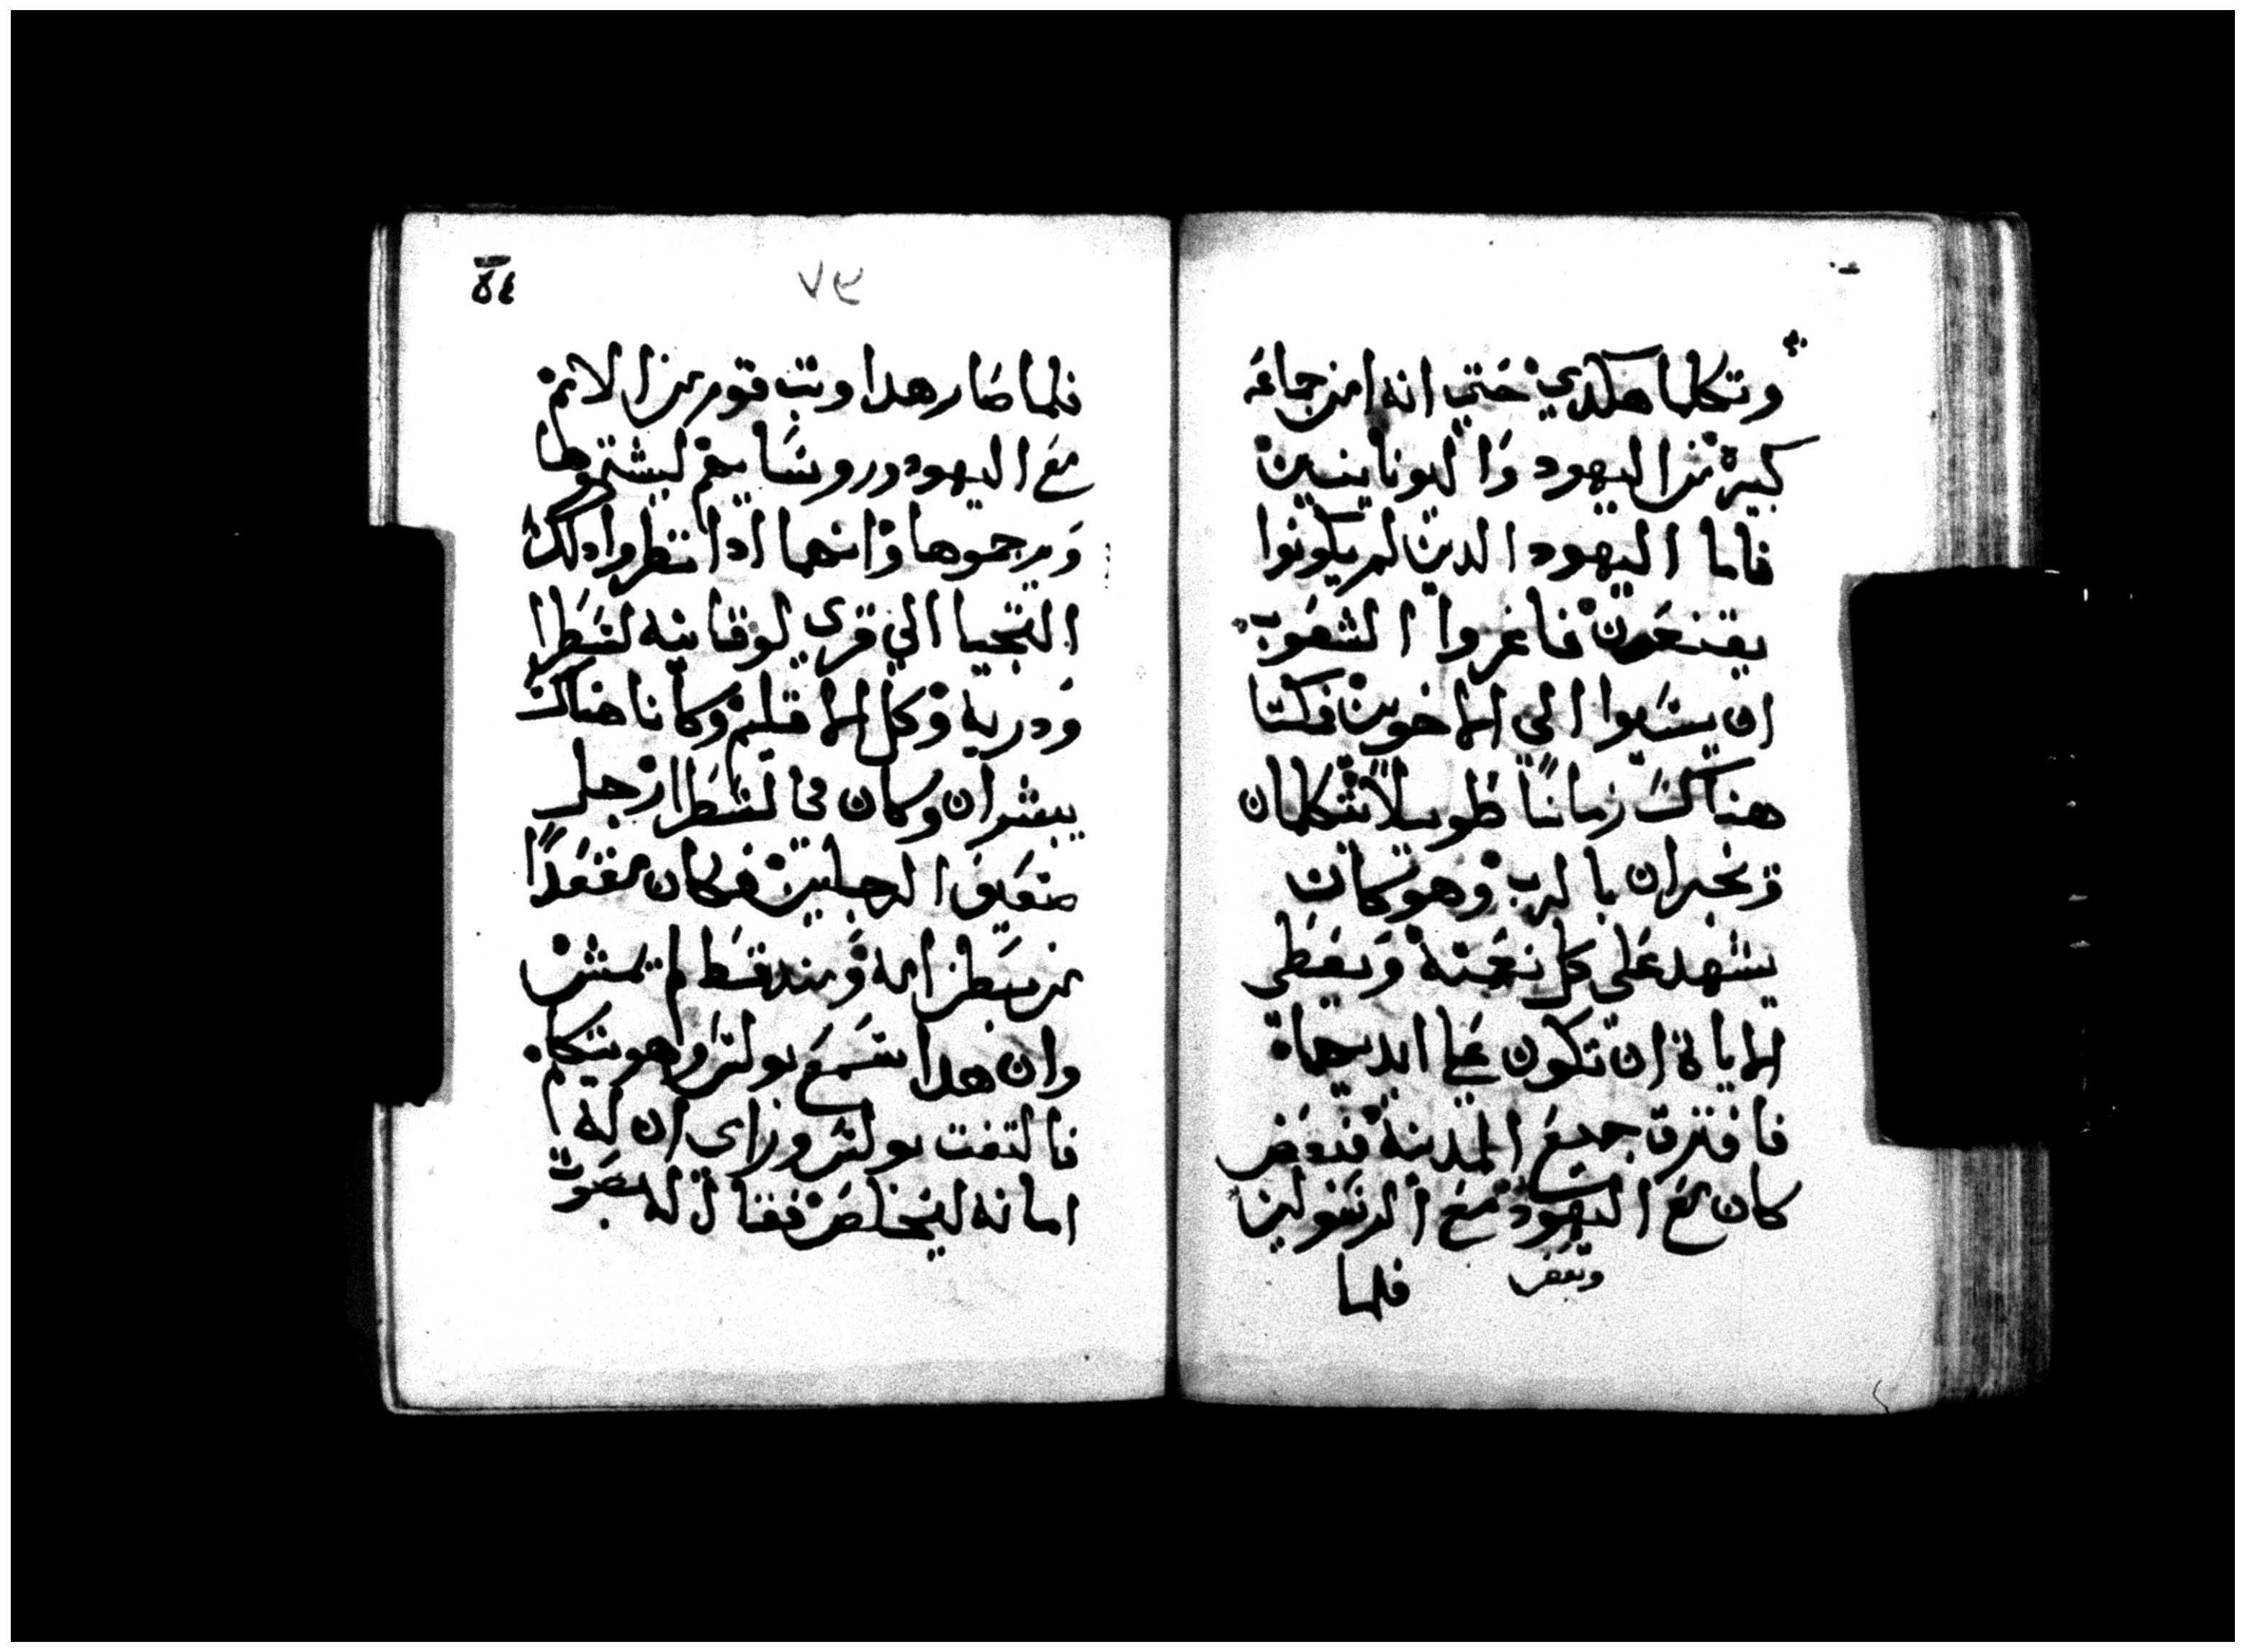 وتكلما هكدي حتي انه امن جماعه
كبيرة من اليهود واليونانيين
فاما اليهود الدين لم يكونوا
يقنعون فاغروا الشعوب
ان يسيوا الي الاخوين فمكتا
هناك زمانا طويلا يتكلمان
ويخبران بالرب وهو كان
يشهد علي كل نعمته ويعطي
الاياة ان تكون علي ايديهما
فافترق جميع المدينة فبعض
كان مع اليهود مع الرسولين
وبعض
فلما
٧٥
فلما صار هدا وتب قوم من الامم
مع اليهود وروسايهم ليشتموهما
ويرجموهما وانهما ادا نظروا دلك
التجيا الي قري لوقانيه لسطرا
ودربه وكل الاقليم وكانا هناك
يبشران وكان في لسطرا رجل
ضعيف الرجلين فكان مقعدا
من بطن امه ومند قط لم يمش
وان هدا سمع بولس وهو يتكلم
فالتفت بولس وراي ان له
امانه ليخلص فقال له بصوت